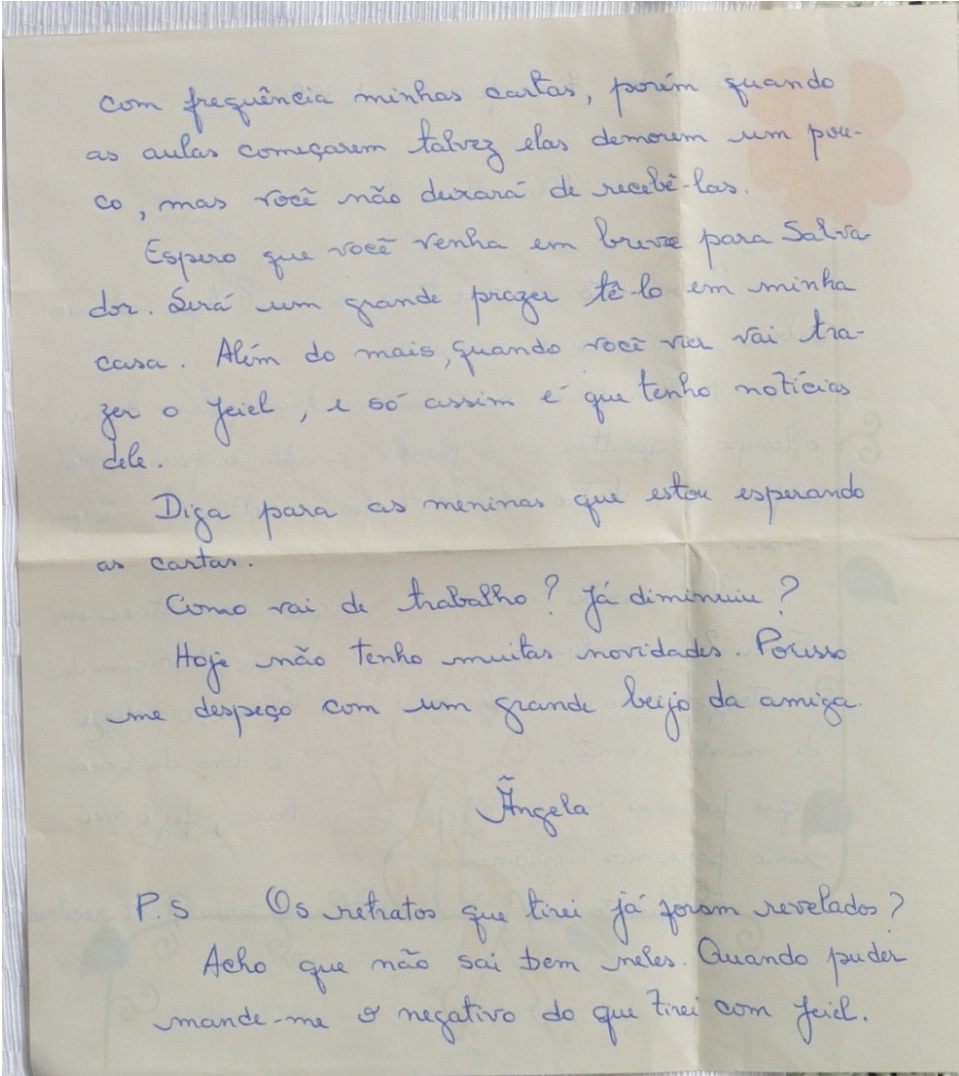 com frequência minhas cartas, porém quando
as aulas começarem talvez elas demorem um pou-
co, mas você não deixará de recebê-las.
Espero que você venha em breve para Salva-
dor. Será um grande prazer tê-lo em minha
casa. Além do mais, quando você vier vai tra-
zer o Jeiel, e só assim é que tenho notícias
dele.
Diga para as meninas que estou esperando
as cartas.
Como vai de trabalho? Já diminuiu?
Hoje não tenho muitas novidades. Porisso
me despeço com um grande beijo da amiga.
Ângela
P.S Os retratos que tirei já foram revelados?
Acho que não sai bem neles. Quando puder
mande-me o negativo do que tirei com Jeiel.